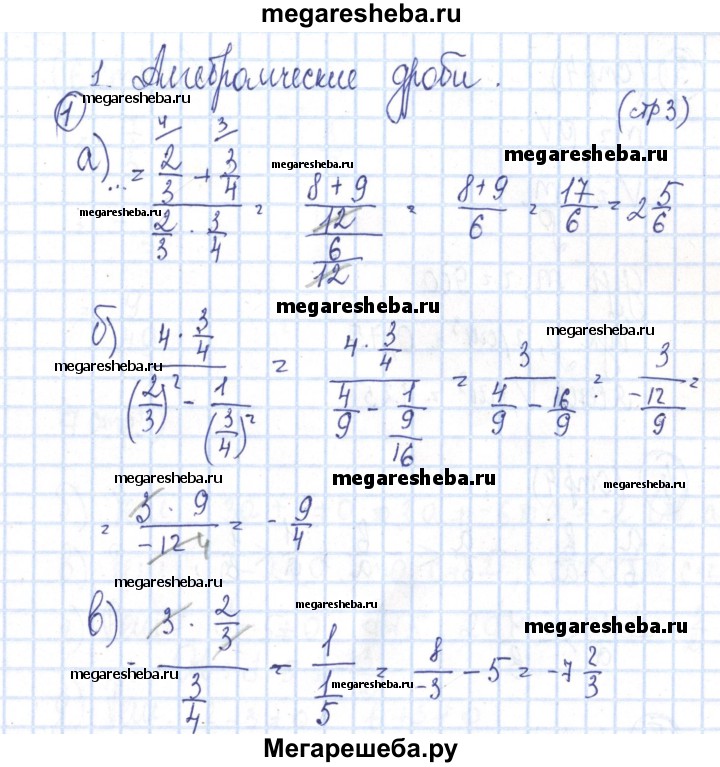 megaresheba.ru
1. Алгебраические дроби.
megaresheba.ru
① 4 3 (стр 3)
а) ... = (2/3 + 3/4)/(2/3 · 3/4) = ((8+9)/12)/(6/12) = (8+9)/6 = 17/6 = 2 5/6
megaresheba.ru megaresheba.ru
megaresheba.ru
megaresheba.ru
б) (4 · 3/4)/((2/3)² - 1/(3/4)²) = (4 · 3/4)/(4/9 - 1/(9/16)) = 3/(4/9 - 16/9) = 3/(-12/9) =
megaresheba.ru
megaresheba.ru
megaresheba.ru megaresheba.ru
= (3 · 9)/(-12 4) = - 9/4
megaresheba.ru
megaresheba.ru
megaresheba.ru
в) (3 · 2/3)/(3/4) - 1/(1/5) = 8/-3 - 5 = -7 2/3
megaresheba.ru
megaresheba.ru
Мегарешеба.ру